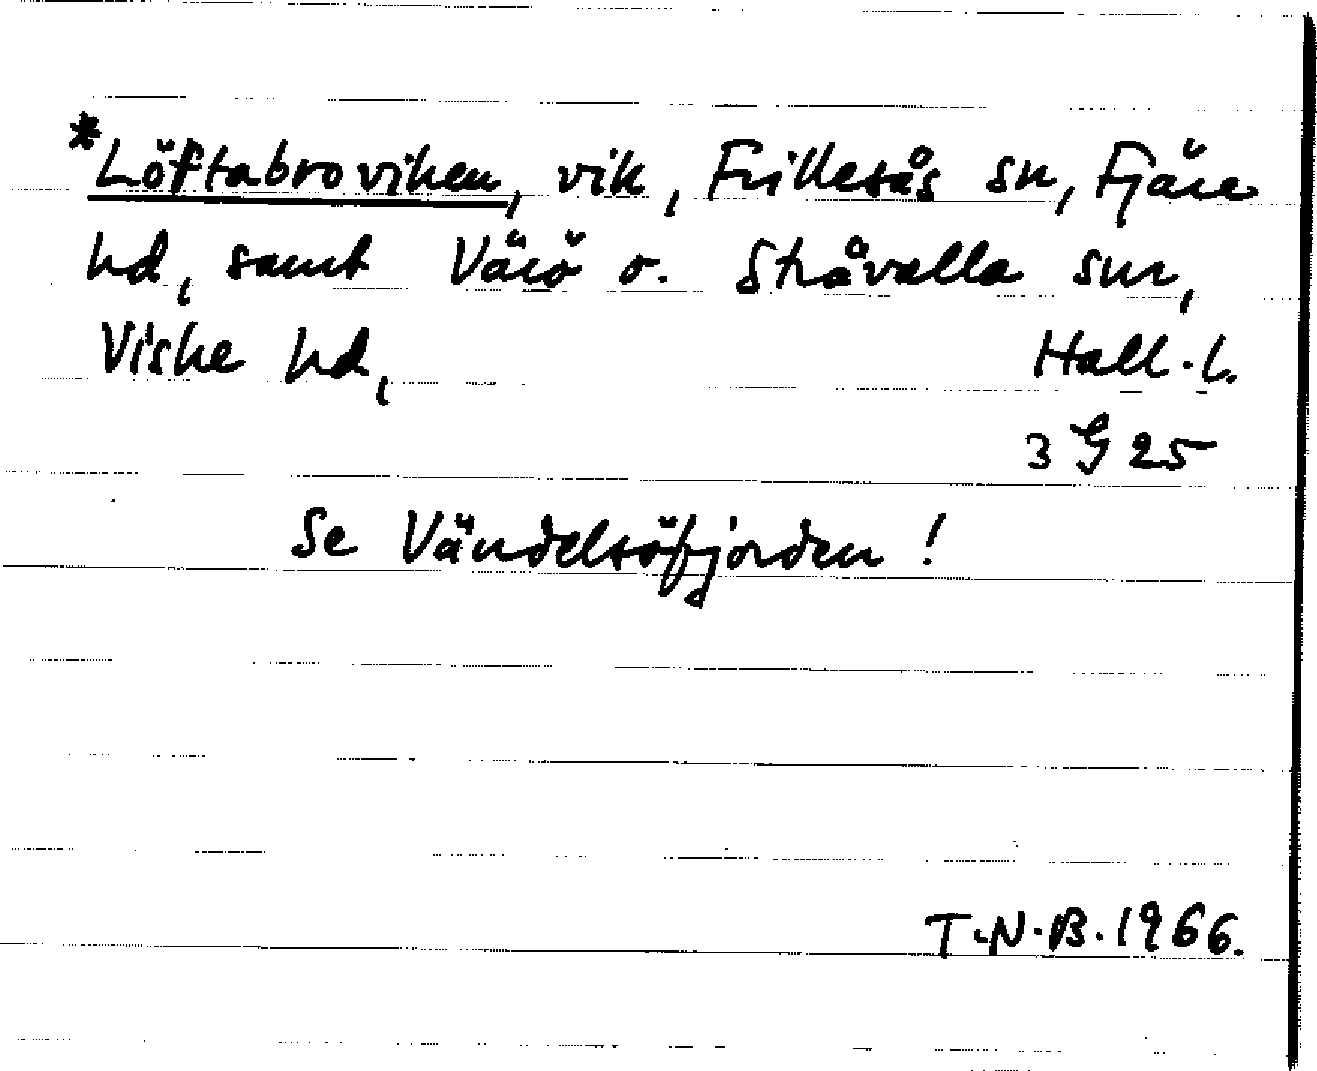 *Löftabroviken, vik, Frillesås sn, Fjäre
hd, samt Värö o. Stråvalla snr,
Viske hd, Hall. l.
3 G 25
Se Vändelsöfjorden!
T.N.B. 1966.